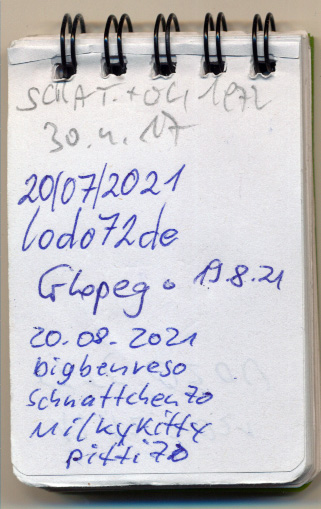 SCHAT.+OLI 1972
30.4.17
20/07/2021
lodo72de
19.8.21
20.08.2021
bigbenreso
schnattchen70
Milkykitty
pitti70